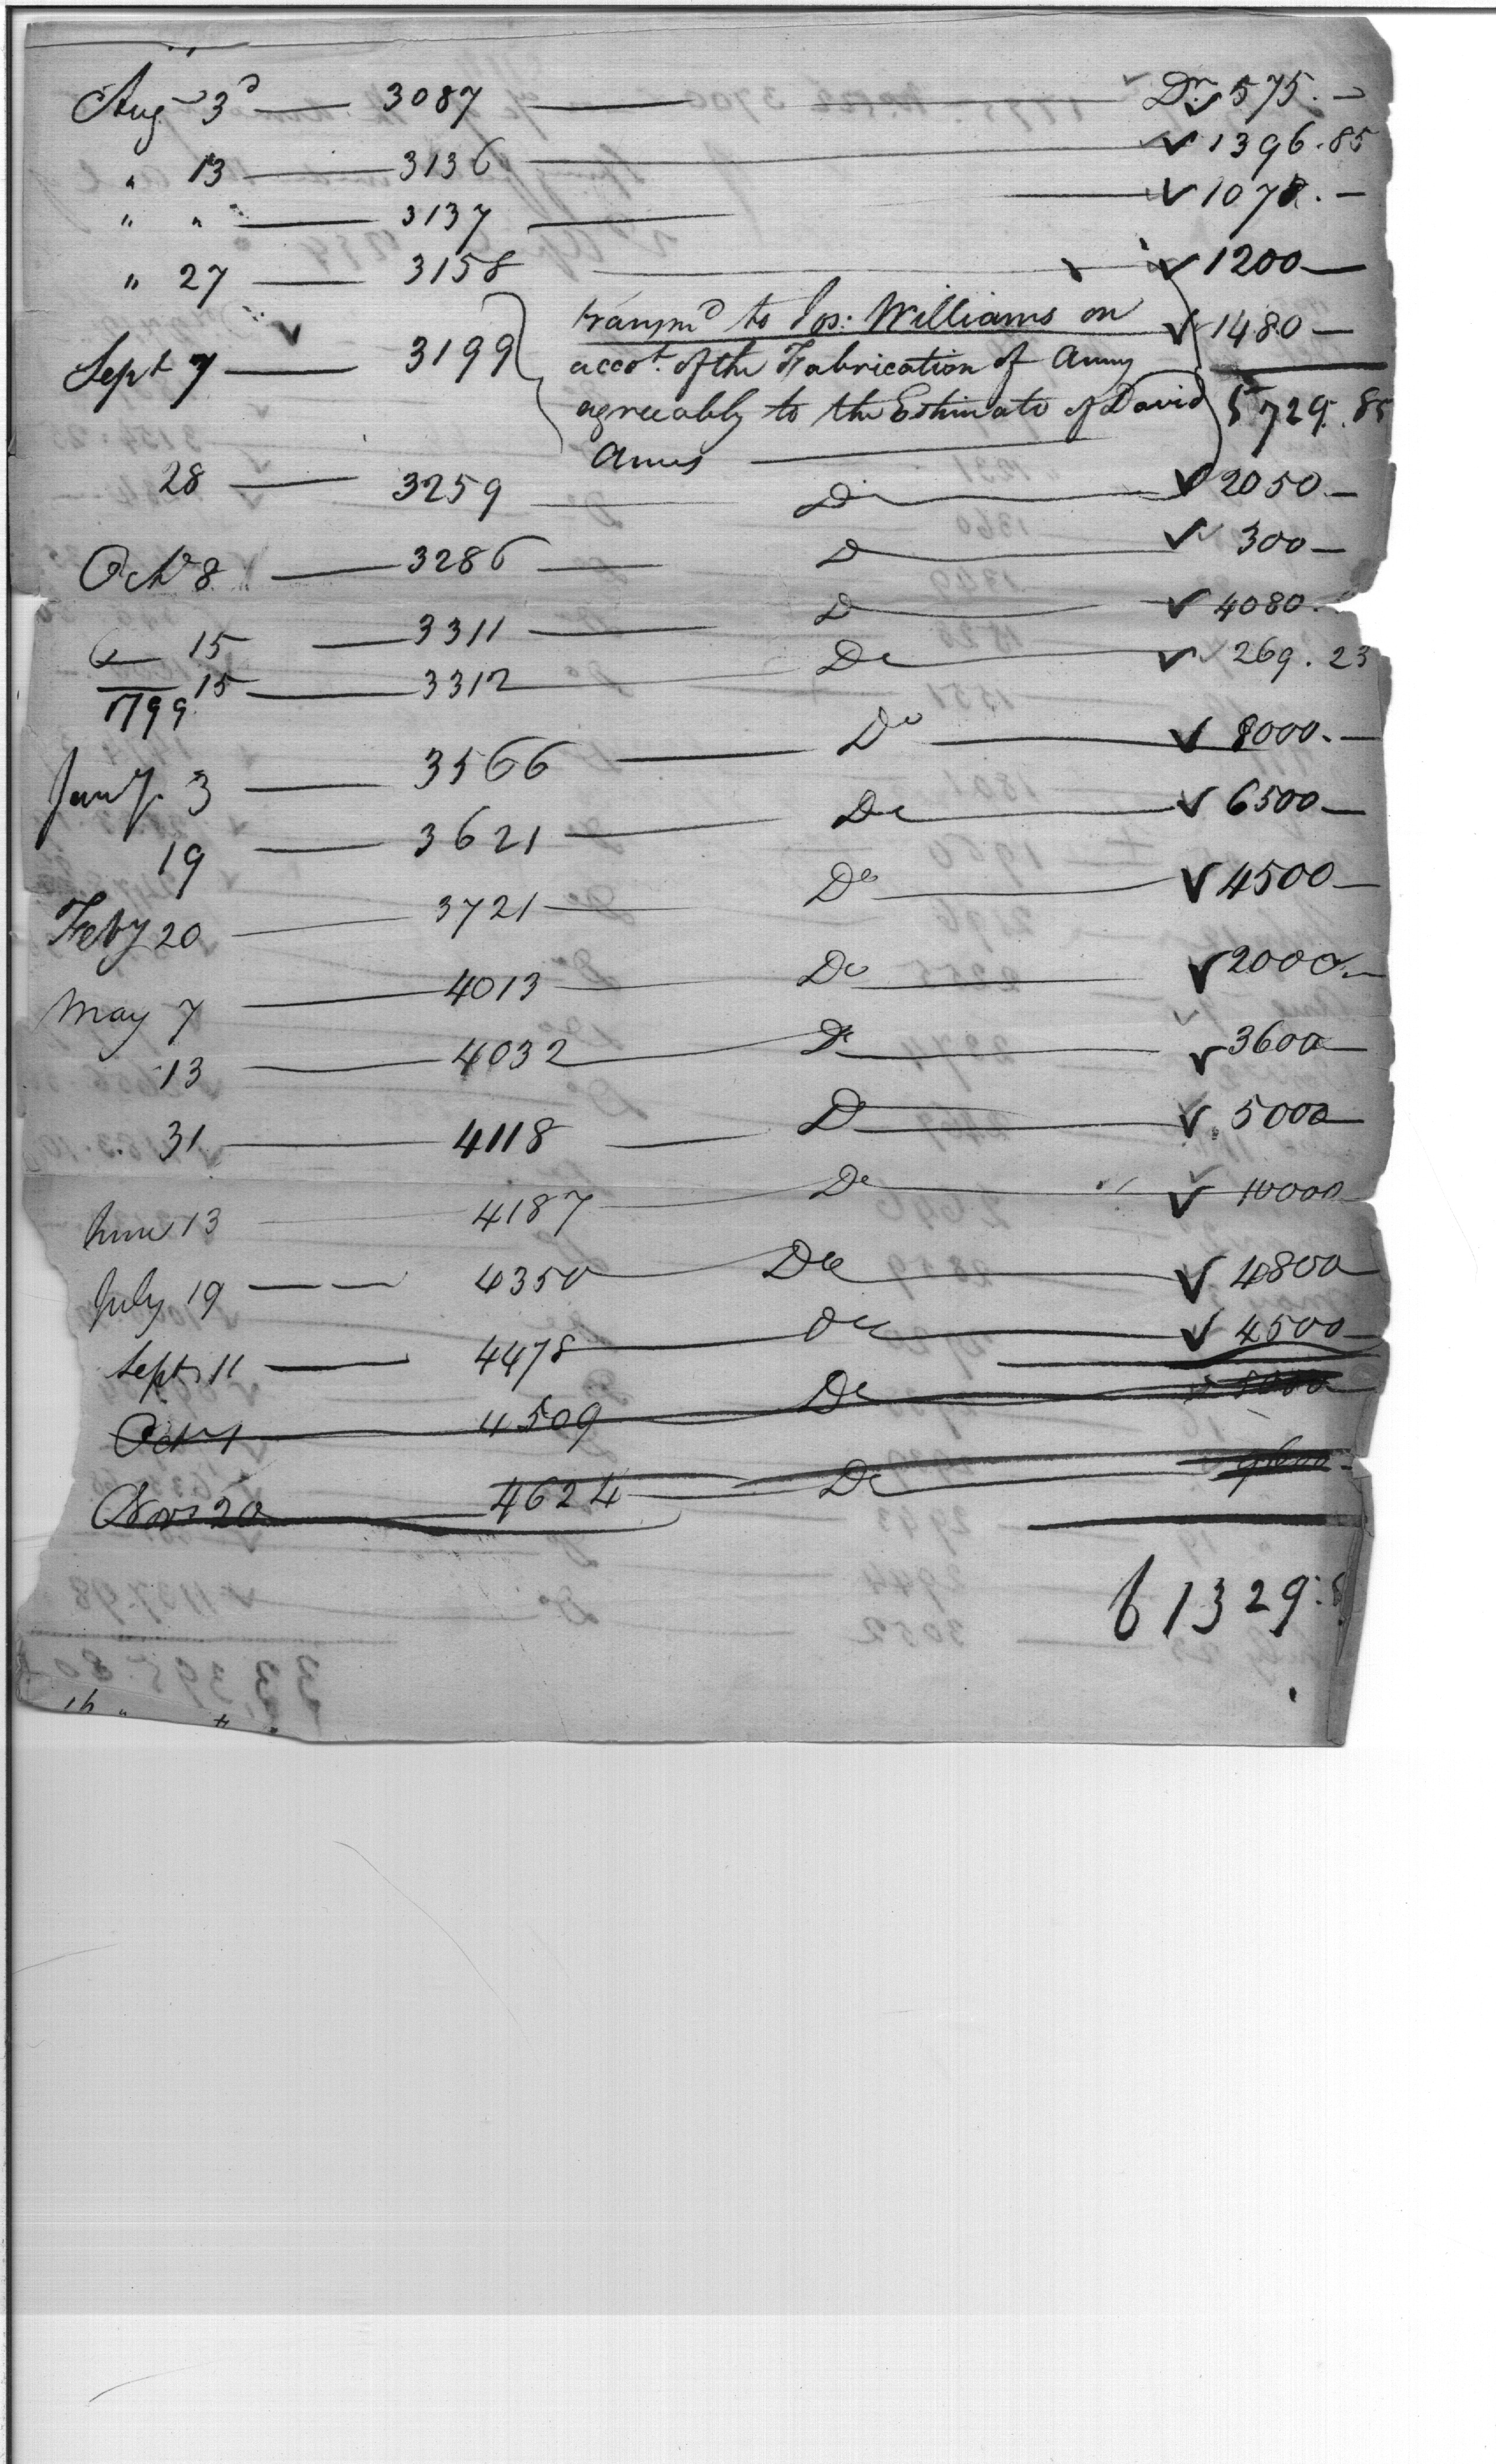 Augt 3d — 3087 — Drs ✓ 575. —
" 13 — 3136 — ✓ 1396.85
" " — 3137 — ✓ 1078. —
" 27 — 3158 — ✓ 1200 —
Sept 7 — 3199 { transmd to Jos: Williams on ✓ 1480 —
accot. of the Fabrication of Arms
agreeably to the Estimate of David 5729.85
Ames —
28 — 3259 — Do — ✓ 2050. —
Octr 8 — 3286 — Do — ✓ 300 —
15 — 3311 — Do — ✓ 4080.
15 — 3312 — Do — ✓ 269.23
1799
Jany. 3 — 3566 — Do — ✓ 8000. —
19 — 3621 — Do — ✓ 6500 —
Feby 20 — 3721 — Do — ✓ 4500 —
May 7 — 4013 — Do — ✓ 2000. —
13 — 4032 — Do — ✓ 3600 —
31 — 4118 — Do — ✓ 5000 —
June 13 — 4187 — Do — ✓ 10000
July 19 — — 4350 — Do — ✓ 4800
Sept 11 — 4478 — Do — ✓ 4500 —
Octr 1 — 4509 — Do — 5000
Novr 20 — 4624 — Do —
61329.